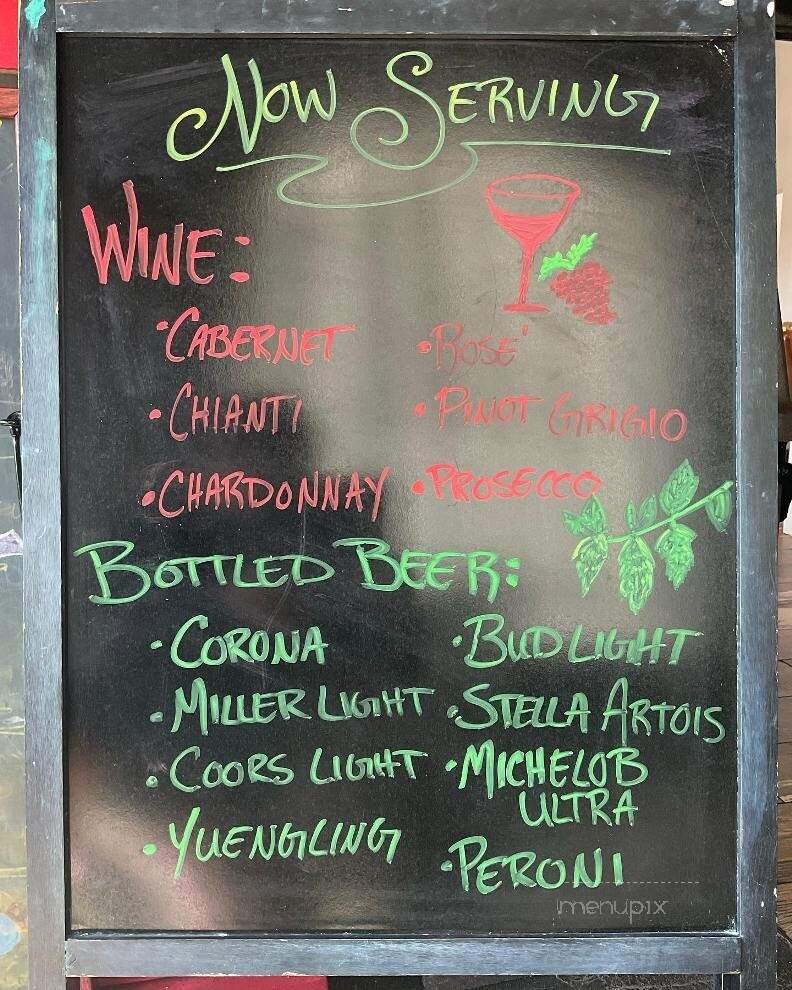 Now Serving
Wine:
•Cabernet •Rosé
•Chianti •Pinot Grigio
•Chardonnay •Prosecco
Bottled Beer:
•Corona •Bud Light
•Miller Light •Stella Artois
•Coors Light •Michelob
Ultra
•Yuengling •Peroni
menupix